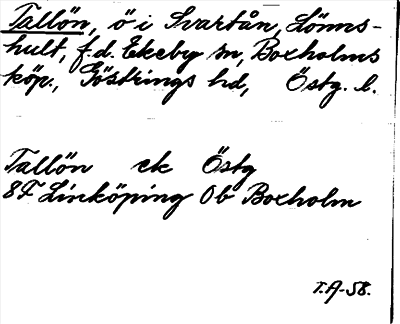 Tallön, ö i Svartån, Lönns-
hult, f.d. Ekeby sn, Boxholms
köp., Göstrings hd, Östg. l.
Tallön ek Östg
8F Linköping 0b Boxholm
T.A-58.